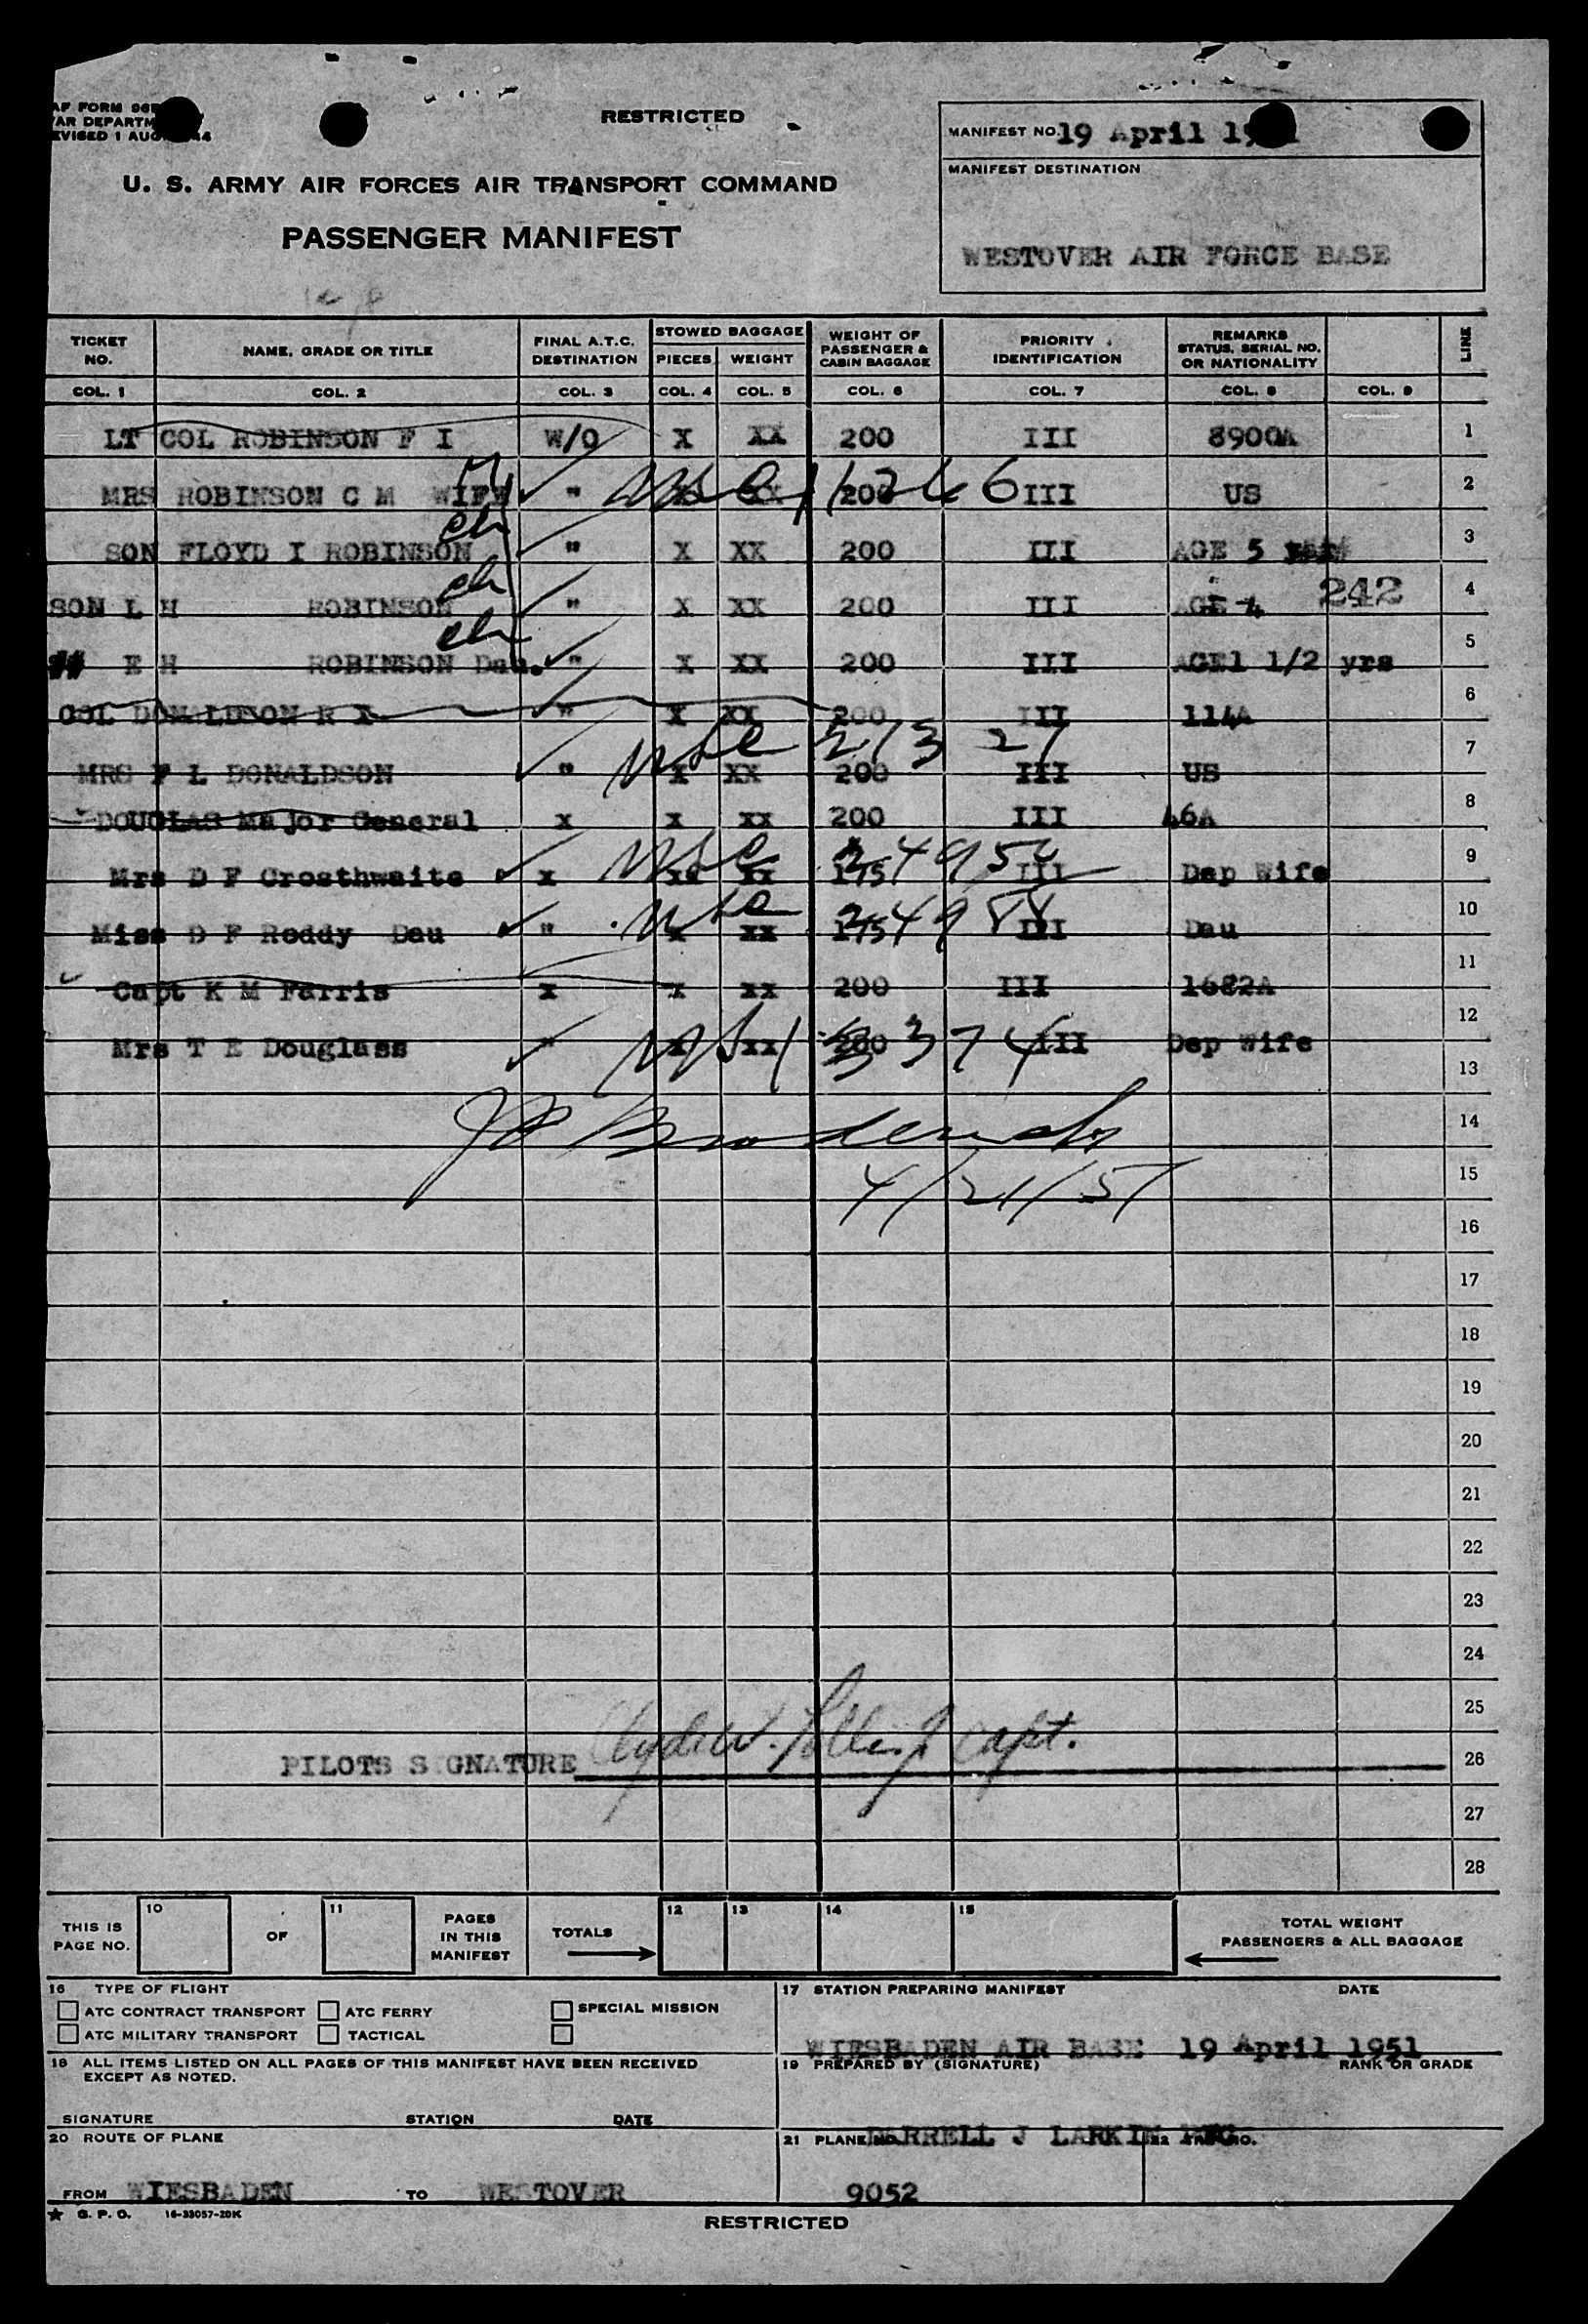 RESTRICTED
WAR DEPARTM
REVISED 1 AUG 44
U. S. ARMY AIR FORCES AIR TRANSPORT COMMAND
PASSENGER MANIFEST
MANIFEST NO. 19 April
MANIFEST DESTINATION
WESTOVER AIR FORCE BASE
TICKET NO. NAME, GRADE OR TITLE FINAL A.T.C. DESTINATION STOWED BAGGAGE PIECES WEIGHT WEIGHT OF PASSENGER & CABIN BAGGAGE PRIORITY IDENTIFICATION REMARKS STATUS, SERIAL NO. OR NATIONALITY LINE
COL. 1 COL. 2 COL. 3 COL. 4 COL. 5 COL. 6 COL. 7 COL. 8 COL. 9
LT COL ROBINSON F I W/O X XX 200 III 8900A 1
MRS ROBINSON C M WIFE " X XX 200 III US 2
SON FLOYD I ROBINSON ch " X XX 200 III AGE 5 3
SON L H ROBINSON ch " X XX 200 III AGE 4 242 4
E H ROBINSON Dau. ch " X XX 200 III AGE1 1/2 yrs 5
COL DONALDSON R X " X XX 200 III 114A 6
MRS F L DONALDSON " X XX 200 III US 7
DOUGLAS Major General x x xx 200 III 46A 8
Mrs D F Crosthwaite x xx xx 175 III Dep Wife 9
Miss D F Roddy Dau " x xx 175 III Dau 10
Capt K M Farris x x xx 200 III 1682A 11
Mrs T E Douglass " x xx 200 III Dep Wife 12
13
14
4/21/51 15
16
17
18
19
20
21
22
23
24
25
PILOTS SIGNATURE Capt. 26
27
28
THIS IS PAGE NO. 10 OF 11 PAGES IN THIS MANIFEST TOTALS 12 13 14 15 TOTAL WEIGHT PASSENGERS & ALL BAGGAGE
16 TYPE OF FLIGHT
ATC CONTRACT TRANSPORT ATC FERRY SPECIAL MISSION
ATC MILITARY TRANSPORT TACTICAL
17 STATION PREPARING MANIFEST DATE
WIESBADEN AIR BASE 19 April 1951
18 ALL ITEMS LISTED ON ALL PAGES OF THIS MANIFEST HAVE BEEN RECEIVED
EXCEPT AS NOTED.
SIGNATURE STATION DATE
19 PREPARED BY (SIGNATURE) RANK OR GRADE
DARRELL J LARKIN
20 ROUTE OF PLANE
FROM WIESBADEN TO WESTOVER
21 PLANE NO. 22
9052
G. P. O. 16-33057-20K
RESTRICTED